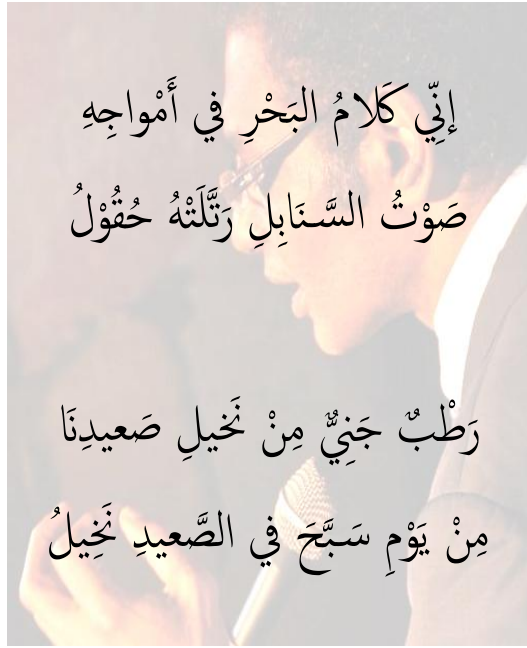 إنِّي كَلامُ البَحْرِ في أَمْواجِهِ
صَوْتُ السَّنَابِلِ رَتَّلَتْهُ حُقُوْلُ
رَطْبٌ جَنِيٌّ مِنْ نَخيلِ صَعيدِنَا
مِنْ يَوْمِ سَبَّحَ في الصَّعيدِ نَخِيلُ